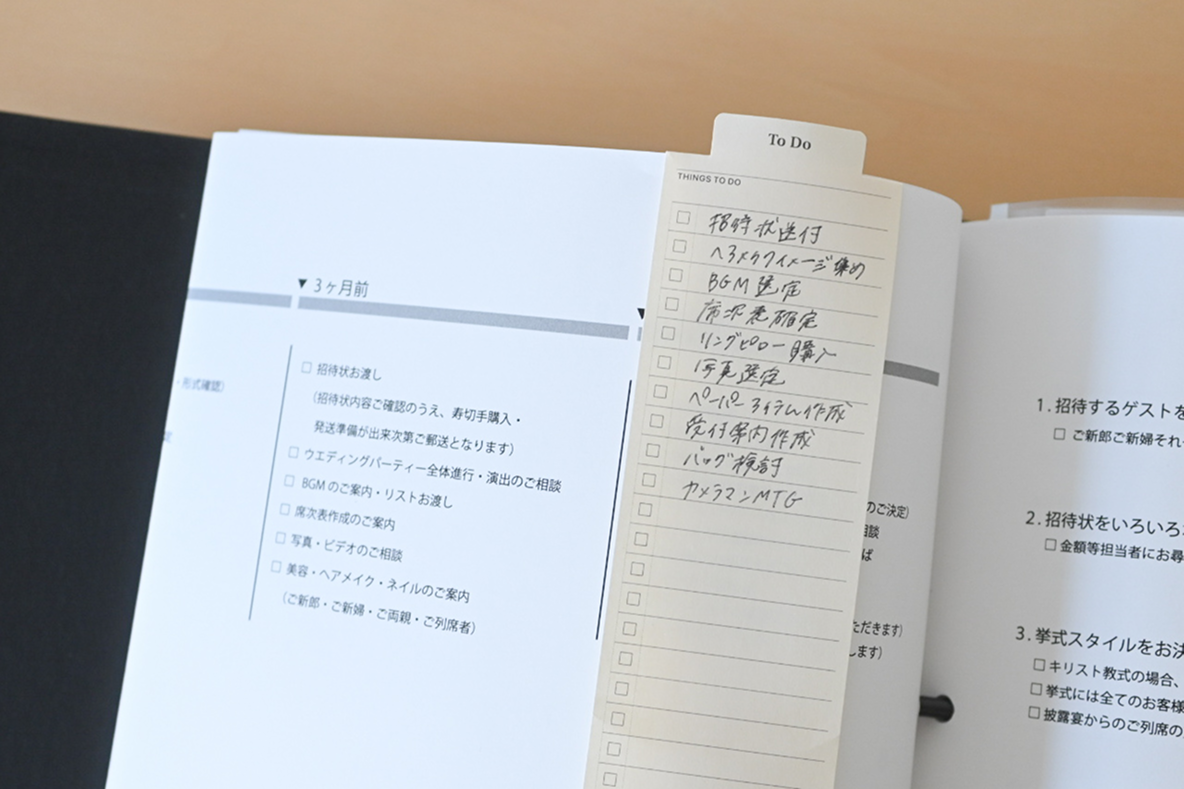 To Do
THINGS TO DO
招待状送付
ヘアメイクイメージ集め
BGM選定
席次表確定
リングピロー購入
写真選定
ペーパーアイテム作成
受付案内作成
バッグ検討
カメラマンMTG
▼3ヶ月前
□ 招待状お渡し
(招待状内容ご確認のうえ、寿切手購入・
発送準備が出来次第ご郵送となります)
□ ウエディングパーティー全体進行・演出のご相談
□ BGMのご案内・リストお渡し
□ 席次表作成のご案内
□ 写真・ビデオのご相談
□ 美容・ヘアメイク・ネイルのご案内
(ご新郎・ご新婦・ご両親・ご列席者)
・形式確認)
定
▼
のご決定)
相談
ば
ただきます)
します)
1.招待するゲストを
□ ご新郎ご新婦それ
2.招待状をいろいろ
□ 金額等担当者にお尋
3.挙式スタイルをお決
□ キリスト教式の場合、
□ 挙式には全てのお客様
□ 披露宴からのご列席の